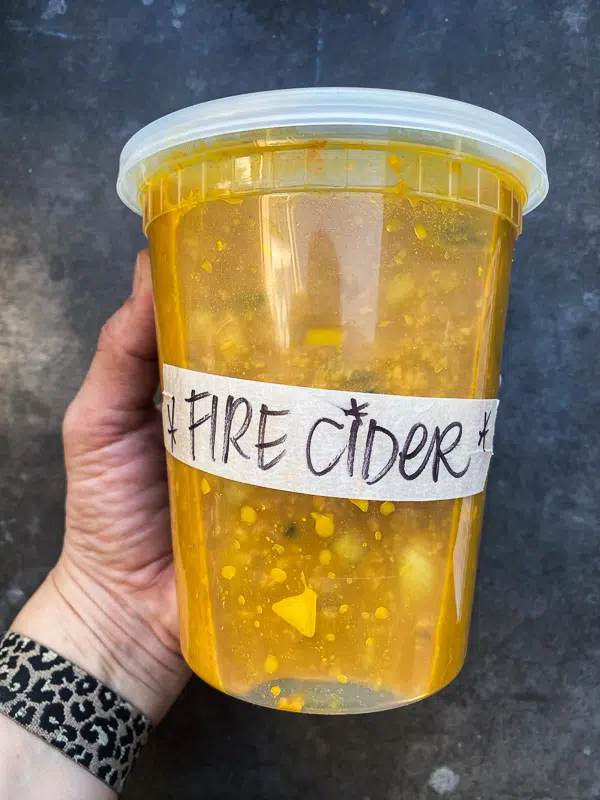 * FIRE CiDER *